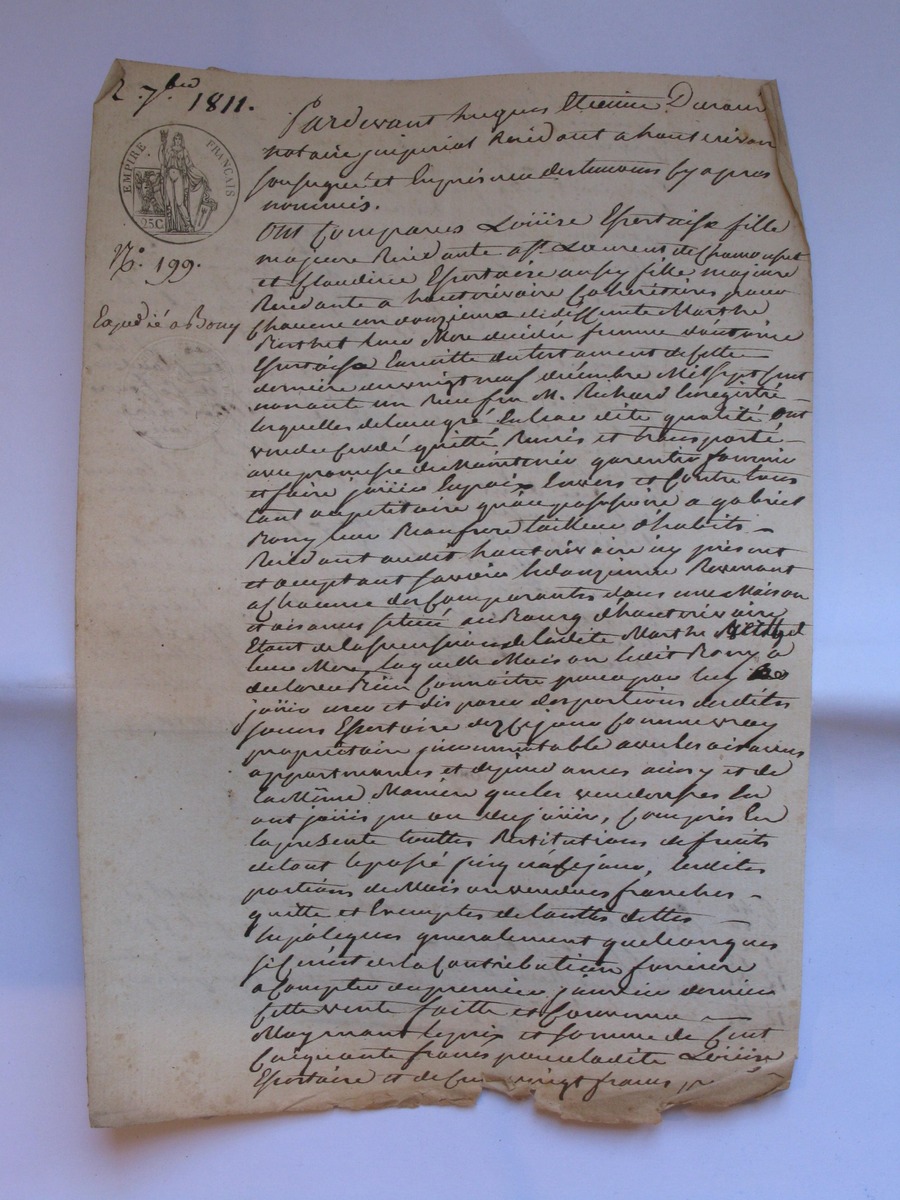 2. 7.bre 1811.
EMPIRE FRANÇAIS
25C
N.o 199.
Expédié a Bony
Pardevant hugues Etienne Durand
notaire jmperial Residant a hauterivoire
soussigné et En presence des temoins cy apres
nommés.
Ont Comparues Loüise Esportaise fille
majeure Residante a St. Laurent de Chamousset
et Claudine Esportaise aussy fille majeure
Residante a hauterivoire Coheritieres pour
chacune un douzieme de deffunte Marthe
leur Mere decedée femme d'antoine
Esportaise Ensuitte du testament de Cette
derniere du vingt neuf décembre Mil sept Cent
nonante un Reçu pra M. Richard Enregistré
lesquelles de leur gré En leur dite qualité Ont
vendu Cedé quitté Remis et transporté
avec promesse de Maintenir garentir fournir
et faire joüir En paix Envers et Contre tous
tant au petitoire qu'au possessoire a gabriel
Bony leur Beaufrere tailleur d'habits
Residant audit hauterivoire icy present
et acceptant savoir le douzieme Revenant
a Chacune des Comparantes dans une Maison
et aisances situé au Bourg d'hauterivoire
Etant de la succession de ladite Marthe
leur Mere laquelle Maison ledit Bony a
declaré Bien Connoitre pour par luy
joüir user et disposer des portions desdites
soeurs Esportaise dez Cejour Comme vray
propriétaire jncommutable avec les aisances
appartenances et dependances ainsy et de
la Même Maniere que les venderesses En
ont joüis pu ou du joüir, Compris En
la presente touttes Restitutions de fruits
de tout le passé jusqu'a Cejour, lesdites
portions de Maison vendues franches
quitte et Exemptes de touttes dettes
hipoteques generalement quelconques
si Ce n'est de la Contribution fonciere
a Compter du premier janvier dernier
Cette vente faitte et Convenue
Moyennant le prix et somme de Cent
Cinquante francs pour ladite Loüise
Esportaise et de Cent vingt francs